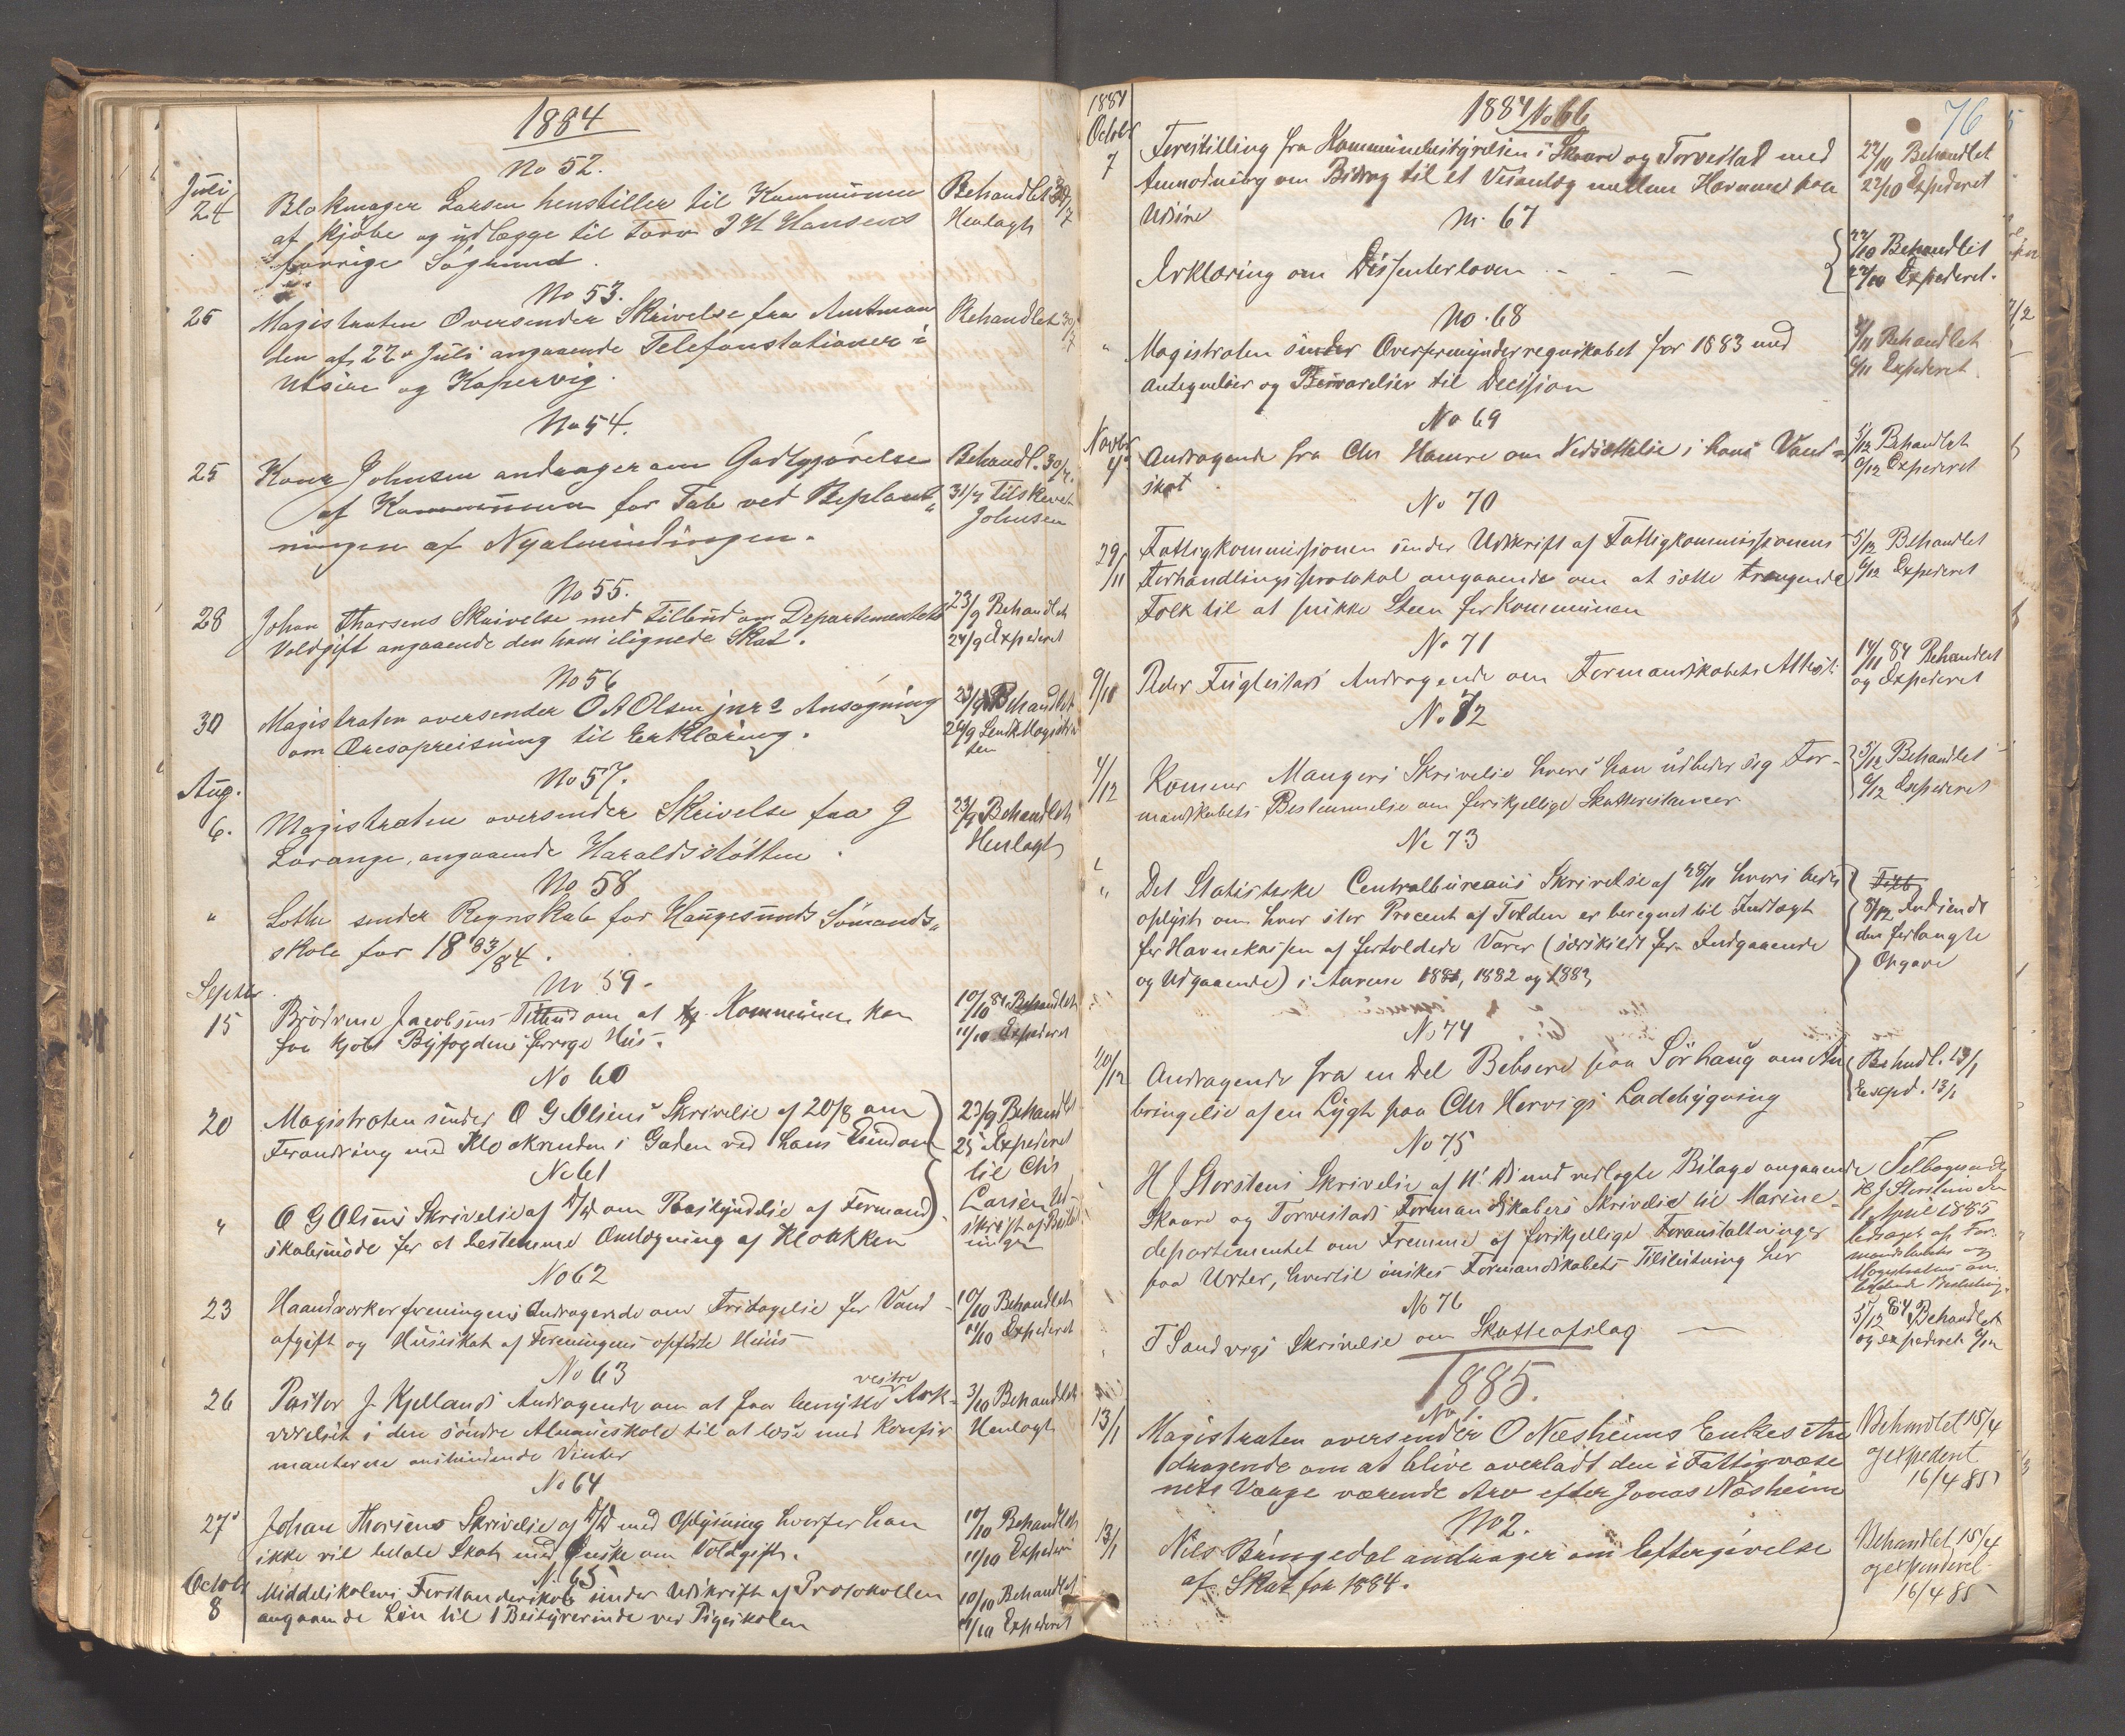 1884
No 52.
Juli
24 Blokmager Larsen henstiller til Kommunen Behandlet 30/7
af kjøbe og udlægge til Torv J H Hansens Henlagt
forrige Søgrund.
No 53.
25 Magistraten Oversender Skrivelse fra Amtman Behandlet 30/7
den af 22 Juli angaaende Telefonstationer i
Utsire og Kopervig.
No 54.
25 Johnsen andrager om Godtgjørelse Behandl. 30/7.
af Kommunen for Tab ved Beplant 31/7 Tilskrevet
ningen af Nyalmindingen. Johnsen
No 55.
28 Johan Thorsens Skrivelse med Tilbud om Departementets 23/9 Behandlet
Voldgift angaaende den ham ilignede Skat. 24/9 Expederet
No 56
30 Magistraten oversender O A Olsen jnrs Ansøgning 23/9 Behandlet
om Æresopreisning til Erklæring. 24/9 Sendt Magistra
ten
No 57.
Aug.
6. Magistraten oversender Skrivelse fra J 23/9 Behandlet
Lorange, angaaende Haraldsstøtten. Henlagt
No 58
" Lothe sender Regnskab for Haugesunds Sømands
skole for 1883/84.
No 59.
Septbr
15 Brødrene Jacobsens Tilbud om at Kommunen kan 10/10 84 Behandlet
faa kjøbt Byfogdens forrige Hus. 11/10 Expederet
No 60
20 Magistraten sender O G Olsens Skrivelse af 20/8 om 23/9 Behandlet
Forandring med Kloakrenden i Gaden ved hans Eiendom 25 Expederet
No 61 til Chr
" O G Olsens Skrivelse af D/D om Paaskyndelse af Formand Larsen Ud-
skabsmøde for at bestemme Omlægning af Kloakken skrift af Beslut
ningen
No 62
23 Haandværkerforeningens Andragende om Fritagelse for Vand 10/10 Behandlet
afgift og Husskat af Foreningens opførte Huus 11/10 Expederet
No 63
vestre
26 Pastor J. Kjellands Andragende om at faa benytte 3/10 Behandlet
værelset i den søndre Almueskole til at læse med Konfir Henlagt
manterne anstundende Vinter
No 64
27 Johan Thorsens Skrivelse af D/D med Oplysning hvorfor han 10/10 Behandlet
ikke vil betale Skat med Ønske om Voldgift. 11/10 Expederet
No 65
Octobr
8 Middelskolens Forstanderskab sender Udskrift af Protokollen 10/10 Behandlet
angaaende Løn til 1 Bestyrerinde ved Pigeskolen 11/10 Expederet
76
1884 1884 No 66
Octobr
7 Forestilling fra Kommunebestyrelsen i Skaare og Torvestad med 22/10 Behandlet
Anmodning om Bidrag til et Veianlæg mellem Havnene paa 22/10 Expederet
Udsire
No 67
Erklæring om Dissenterloven - - - 22/10 Behandlet
22/10 Expederet.
No. 68
" Magistraten sender Overformynderregnskabet for 1883 med Behandlet
Antegnelser og Besvarelser til Decission 6/11 Expederet
No 69
Novbr
4 Andragende fra Chr Hamre om Nedsættelse i hans Vand= 5/12 Behandlet
skat 6/12 Expederet
No 70
29/11 Fattigkommissionen sender Udskrift af Fattigkommissionens 5/12 Behandlet
Forhandlingsprotokol angaaende om at sætte trængende 6/12 Expederet
Folk til at pukke Steen for Kommunen
No 71
9/10 Peder Fuglestads Andragende om Formandskabets Attest. 14/11 84 Behandlet
og Expederet
No 72
4/12 Kæmner Mangers Skrivelse hvori han udbeder sig For- 5/12 Behandlet
mandskabets Bestemmelse om forskjellige Skatterestancer 6/12 Expederet
No 73
" Det Statistiske Centralbureaus Skrivelse af 28/11 hvori bedes
oplyst om hvor stor Procent af Tolden er beregnet til Indtægt 8/12 Indsendt
for Havnekassen af fortoldede Varer (særskildt for Indgaaende den forlangte
og Udgaaende) i Aarene 1881, 1882 og 1883 Opgave
No 74
10/12 Andragende fra en Del Beboere paa Sørhaug om An Behndl. 13/1
bringelse af en Lygt paa Chr Hervigs Ladebygning Exped. 13/1
No 75
H J Storstens Skrivelse af 11 ds med vedlagte Bilage angaaende Tilbagesendt
Skaare og Torvestads Formandskabers Skrivelse til Marine- H J Storstein den
departementet om Fremme af forskjellige Foranstaltninger 11 April 1885
paa Urter, hvortil ønskes Formandskabets Tilslutning her ledsaget af For
mandskabets og
Magistratens
No 76
T Sandvigs Skrivelse om Skatteafslag — 5/12 84 Behandlet
og expederet 6/12
1885.
No 1
13/1 Magistraten oversender O Næsheims Enkes An Behandlet 15/4
dragende om at blive overladt den i Fattigvæse og expederet
nets Værge værende Arv efter Jonas Næsheim 16/4 85
No 2.
13/1 Nils Bringedal andrager om Eftergivelse Behandlet 15/4
af Skat for 1884. og expederet
16/4 85